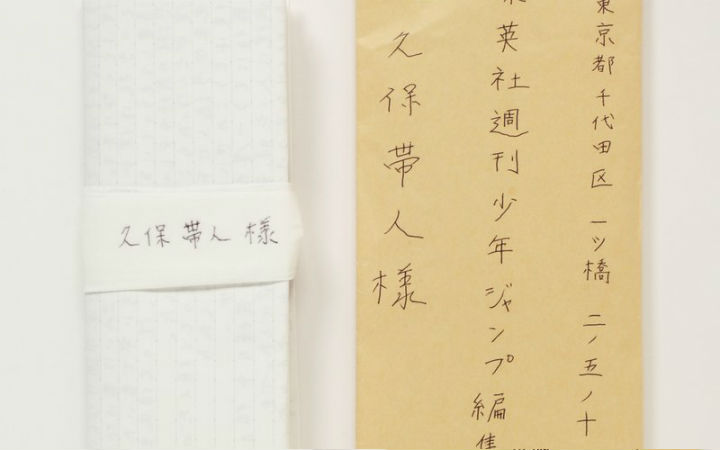 東京都千代田区一ツ橋二ノ五ノ十
集英社週刊少年ジャンプ編集
久保帯人様
久保帯人様